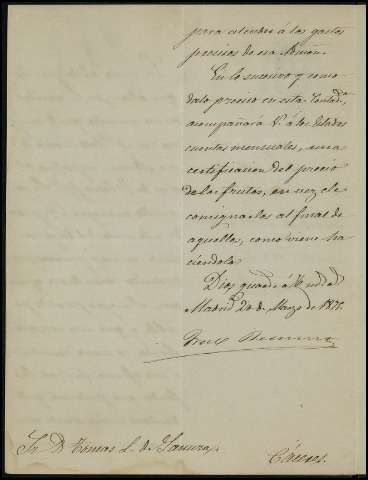 para atender á los gastos
precisos de esa Admón.
En lo sucesivo y como
dato preciso en esta Contad.ª
acompañará V. á los
cuentas mensuales, una
certificacion del precio
de los frutos, en vez de
consignarlos al final de
aquellos, como viene ha
ciendolo
Dios guarde á V. md. a.
Madrid 20 de Marzo de 1877.
Sr. D. Tomas L. de
Cáceres.